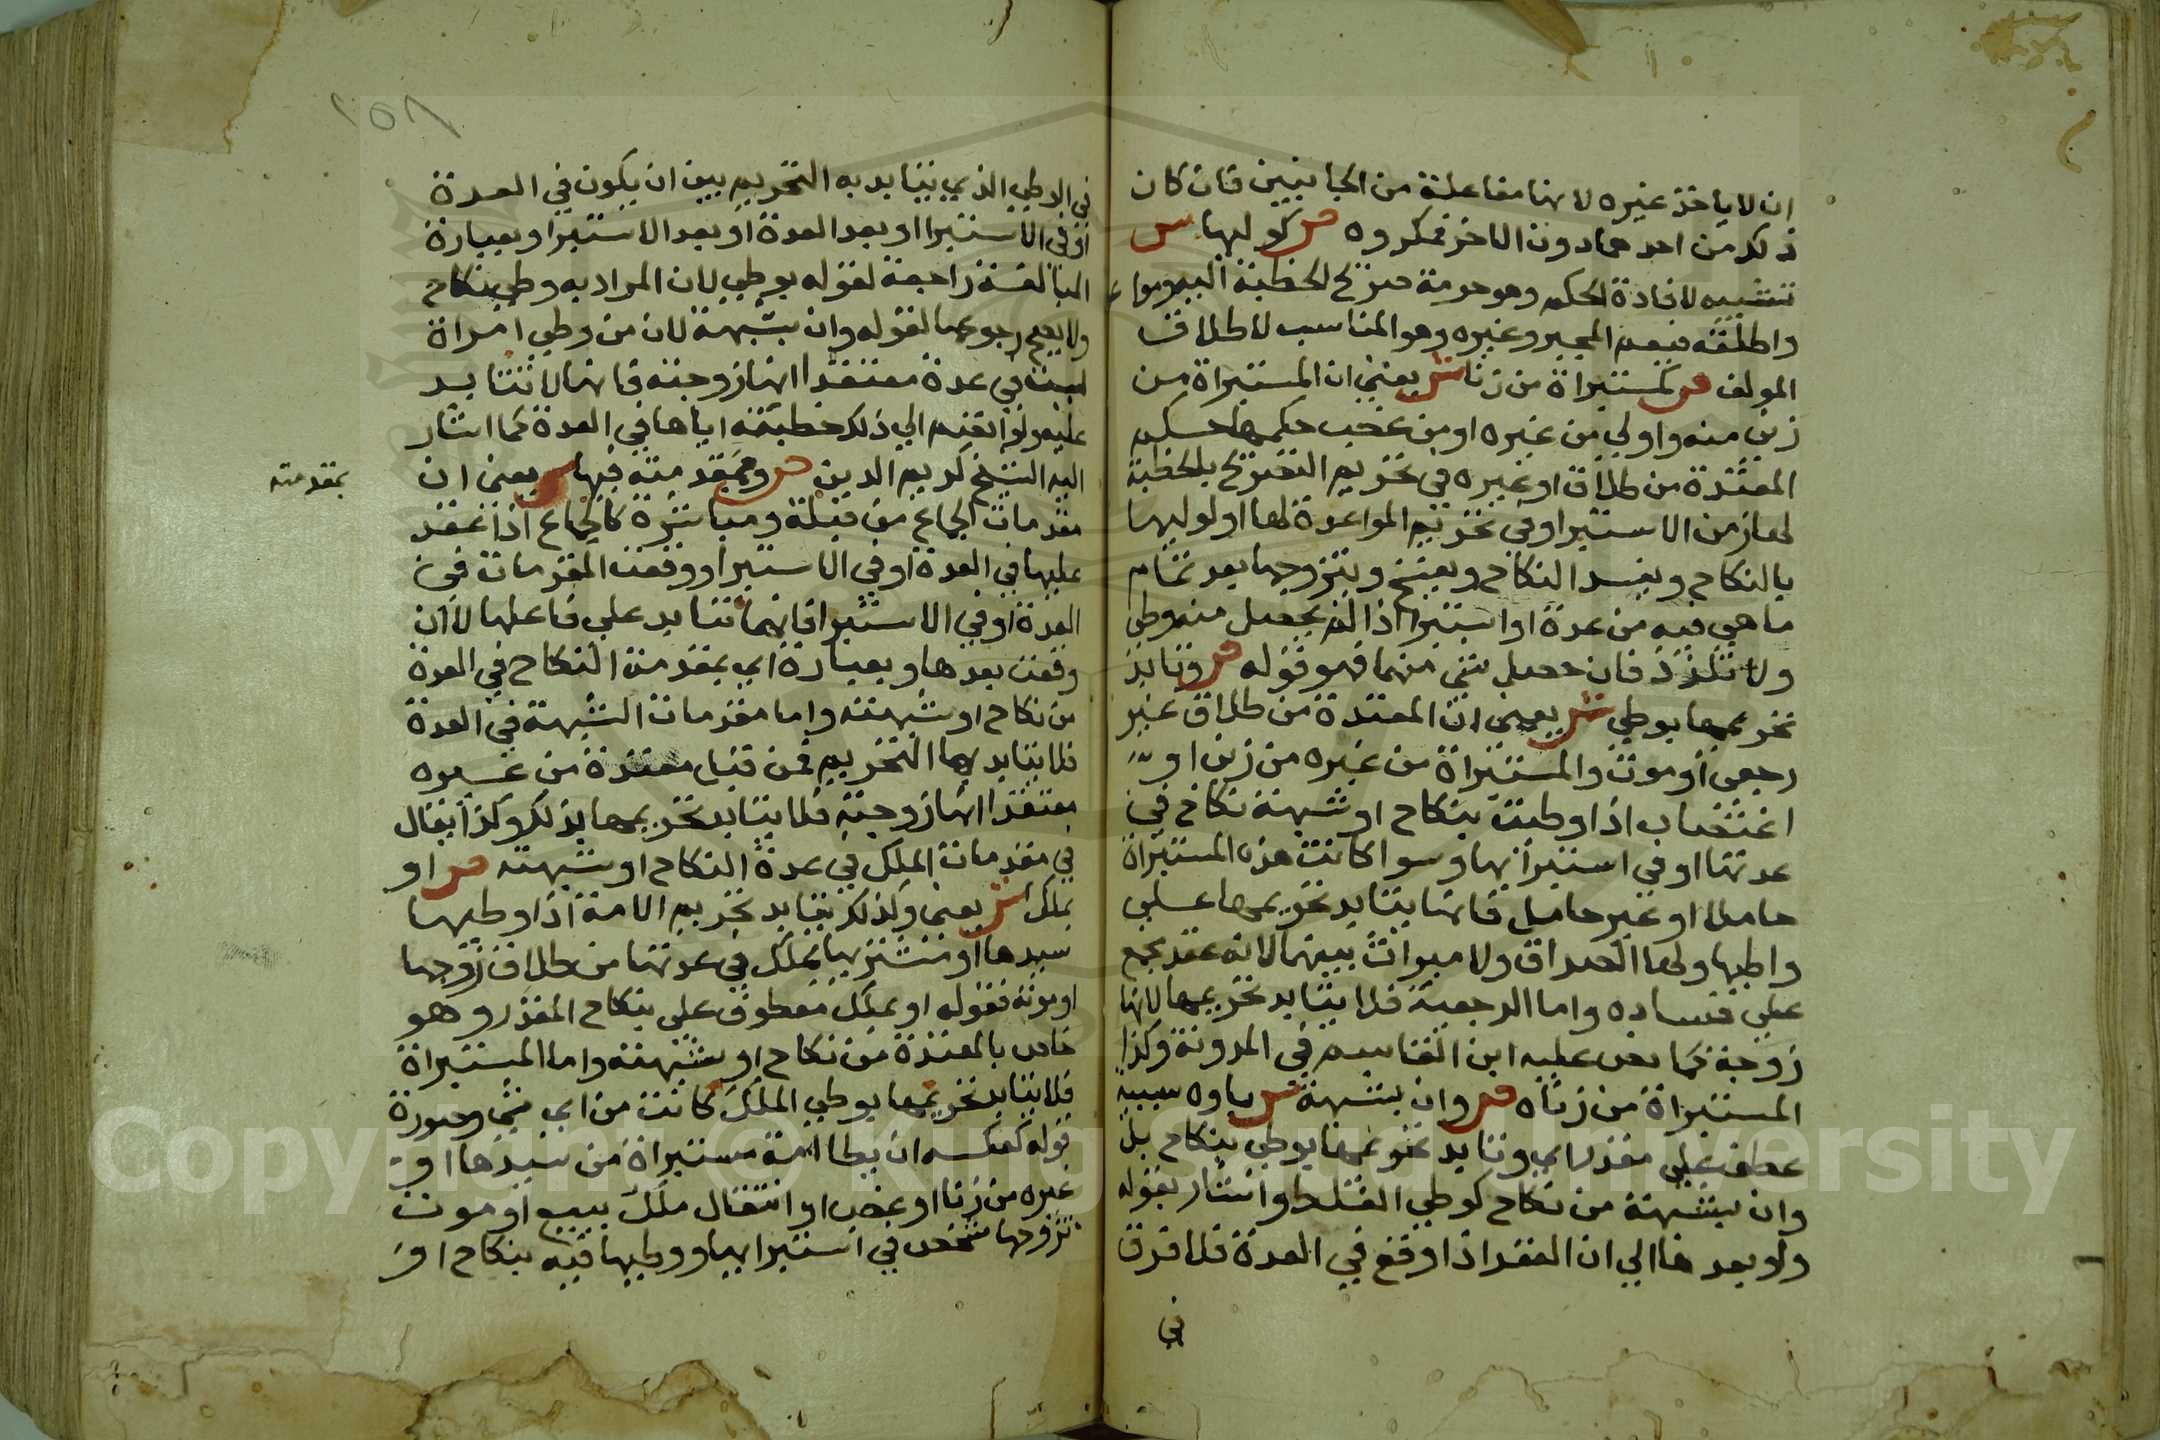 ان لا ياخذ غيره لانها مفاعلة من الجانبين فان كان
ذلك من احدهما دون الاخر فمكروه ص كوليها ش
تشبيه لافادة الحكم وهو حرمة صريح الخطبة
واطلقه فيعم المجبر وغيره وهو المناسب لاطلاق
المولف ص كمستبراة من زنا ش يعني ان المستبراة من
زني منه واولي من غيره او من غصب حكمها حكم
المعتدة من طلاق او غيره في تحريم التصريح بالخطبة
لها زمن الاستبرا وفي تحريم المواعدة لها او لوليها
بالنكاح ويفسد النكاح ويفسخ ويتزوجها بعد تمام
ما هي فيه من عدة او استبرا اذا لم يحصل منه وطي
ولا تلذذ فان حصل شي منهما فهو قوله ص وتابد
تحريمها بوطي ش يعني ان المعتدة من طلاق غير
رجعي او موت والمستبراة من غيره من زني او
اغتصاب اذا وطئت بنكاح او شبهة نكاح في
عدتها او في استبرائها وسوا كانت هذه المستبراة
حاملا او غير حامل فانها يتابد تحريمها علي
واطيها ولها الصداق ولا ميراث بينهما لانه عقد مجمع
علي فساده واما الرجعية فلا يتابد تحريمها لانها
زوجة كما نص عليه ابن القاسم في المدونة وكذا
المستبراة من زناه ص وان بشبهة ش باوه سببية
عطف علي مقدر اي وتابد تحريمها بوطي بنكاح بل
وان بشبهة من نكاح كوطي الغلط واشار بقوله
ولو بعدها الي ان العقد اذا وقع في العدة فلا فرق
في
٢٥٨
في الوطي الذي يتابد به التحريم بين ان يكون في العدة
او في الاستبرا او بعد العدة او بعد الاستبرا وبعبارة
المبالغة راجعة لقوله بوطي لان المراد به وطي بنكاح
ولا يصح رجوعها لقوله وان بشبهة لان من وطي امراة
ليست في عدة معتقدا انها زوجته فانها لا تتابد
عليه ولو انضم الي ذلك خطبته اياها في العدة كما اشار
اليه الشيخ كريم الدين ص وبمقدمته فيها ش يعني ان
بمقدمته
مقدمات الجماع من قبلة ومباشرة كالجماع اذا عقد
عليها في العدة او في الاستبرا ووقعت المقدمات في
العدة او في الاستبرا فانها تتابد علي فاعلها لا ان
وقعت بعدها وبعبارة اي بمقدمة النكاح في العدة
من نكاح او شبهته واما مقدمات الشبهة في العدة
فلا يتابد بها التحريم فمن قبل معتدة من غيره
معتقدا انها زوجته فلا يتابد تحريمها بذلك وكذا يقال
في مقدمات الملك في عدة النكاح او شبهته ص او
بملك ش يعني وكذلك يتابد تحريم الامة اذا وطيها
سيدها او مشتريها بملك في عدتها من طلاق زوجها
او موته فقوله او بملك معطوف علي بنكاح المقدر وهو
خاص بالمعتدة من نكاح او شبهته واما المستبراة
فلا يتابد تحريمها بوطي الملك كانت من اي شي وصورة
قوله كعكسه ان يطا امة مستبراة من سيدها او
غيره من زنا او غصب او انتقال ملك ببيع او موت
تزوجها شخص في استبرائها ووطيها فيه بنكاح او